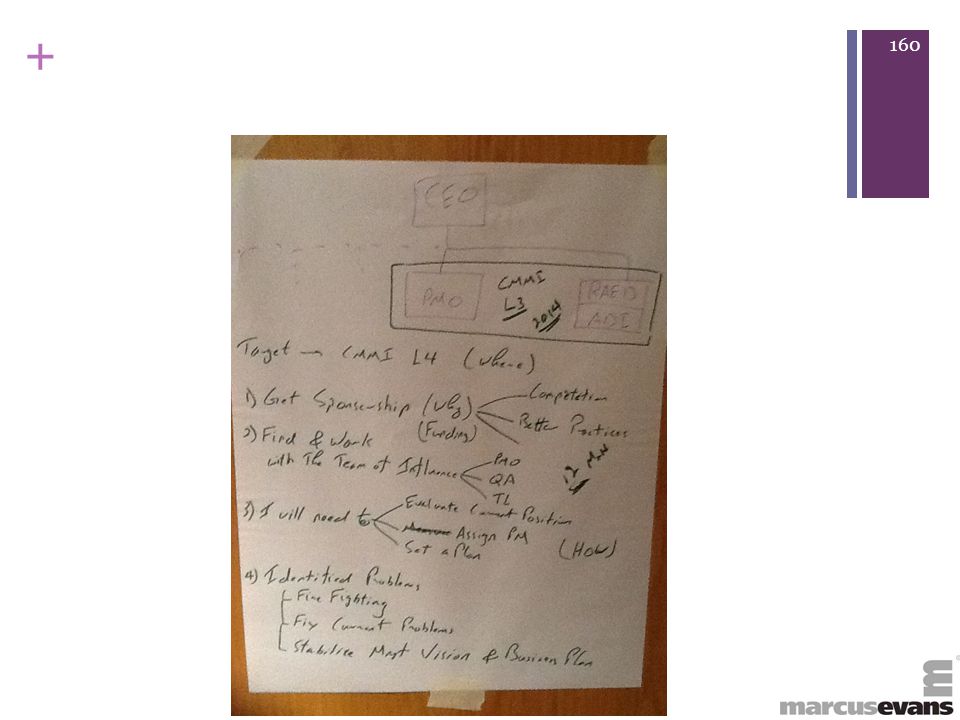 +
160
CEO
PMO
CMMI
L3
2014
RAED
ADI
Target → CMMI L4 (Where)
1) Get Sponsership (Why)
(Funding)
Competetion
Better Practices
2) Find & Work
with The Team of Influence
PMO
QA
TL
12
3) I will need to
Evaluate Current Position
Assign PM
Set a Plan
(How)
4) Identified Problems
Fire Fighting
Fix Current Problems
Stabilise Mngt Vision & Business Plan
marcusevans